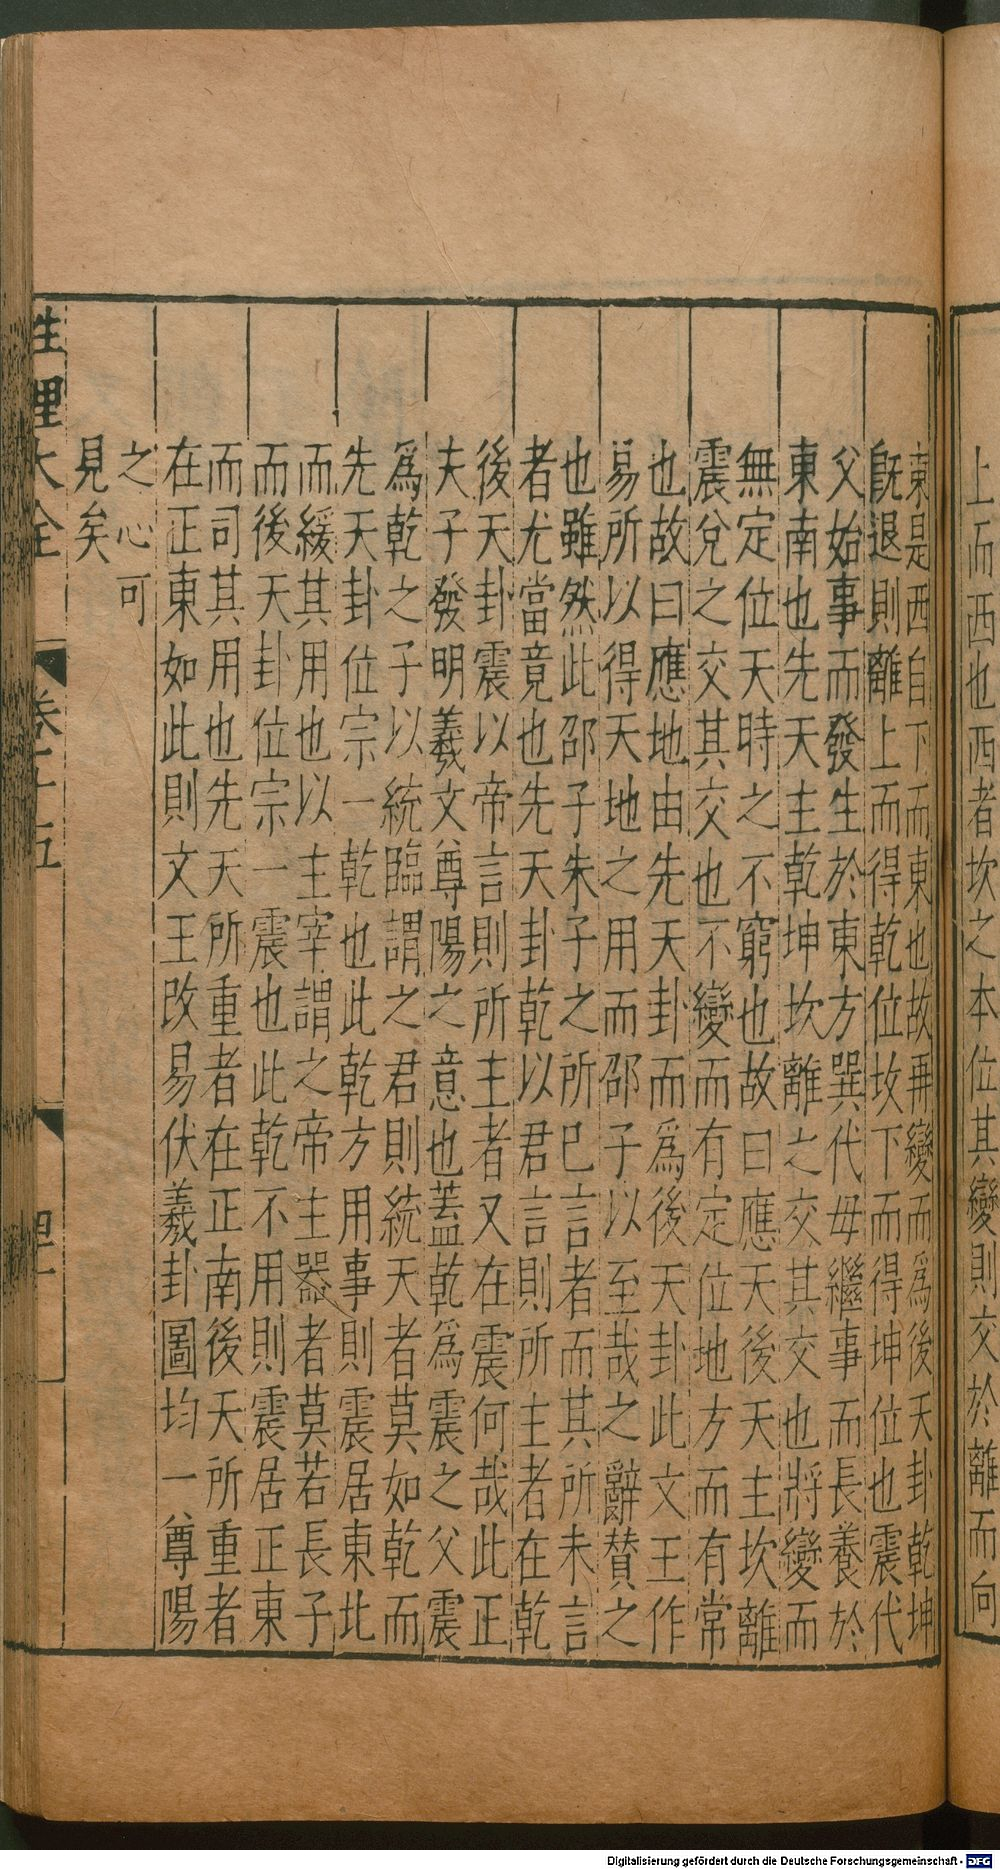 上而西也西者坎之本位其變則交於離而向
東是西自下而東也故再變而爲後天卦乾坤
旣退則離上而得乾位坎下而得坤位也震代
父始事而發生於東方巽代母繼事而長養於
東南也先天主乾坤坎離之交其交也將變而
無定位天時之不窮也故曰應天後天主坎離
震兌之交其交也不變而有定位地方而有常
也故曰應地由先天卦而爲後天卦此文王作
易所以得天地之用而邵子以至哉之辭贊之
也雖然此邵子朱子之所已言者而其所未言
者尤當竟也先天卦乾以君言則所主者在乾
後天卦震以帝言則所主者又在震何哉此正
夫子發明羲文尊陽之意也蓋乾爲震之父震
爲乾之子以統臨謂之君則統天者莫如乾而
先天卦位宗一乾也此乾方用事則震居東北
而緩其用也以主宰謂之帝主器者莫若長子
而後天卦位宗一震也此乾不用則震居正東
而司其用也先天所重者在正南後天所重者
在正東如此則文王改易伏羲卦圖均一尊陽
之心可
見矣
性理大全 卷十五 四十
Digitalisierung gefördert durch die Deutsche Forschungsgemeinschaft - DFG